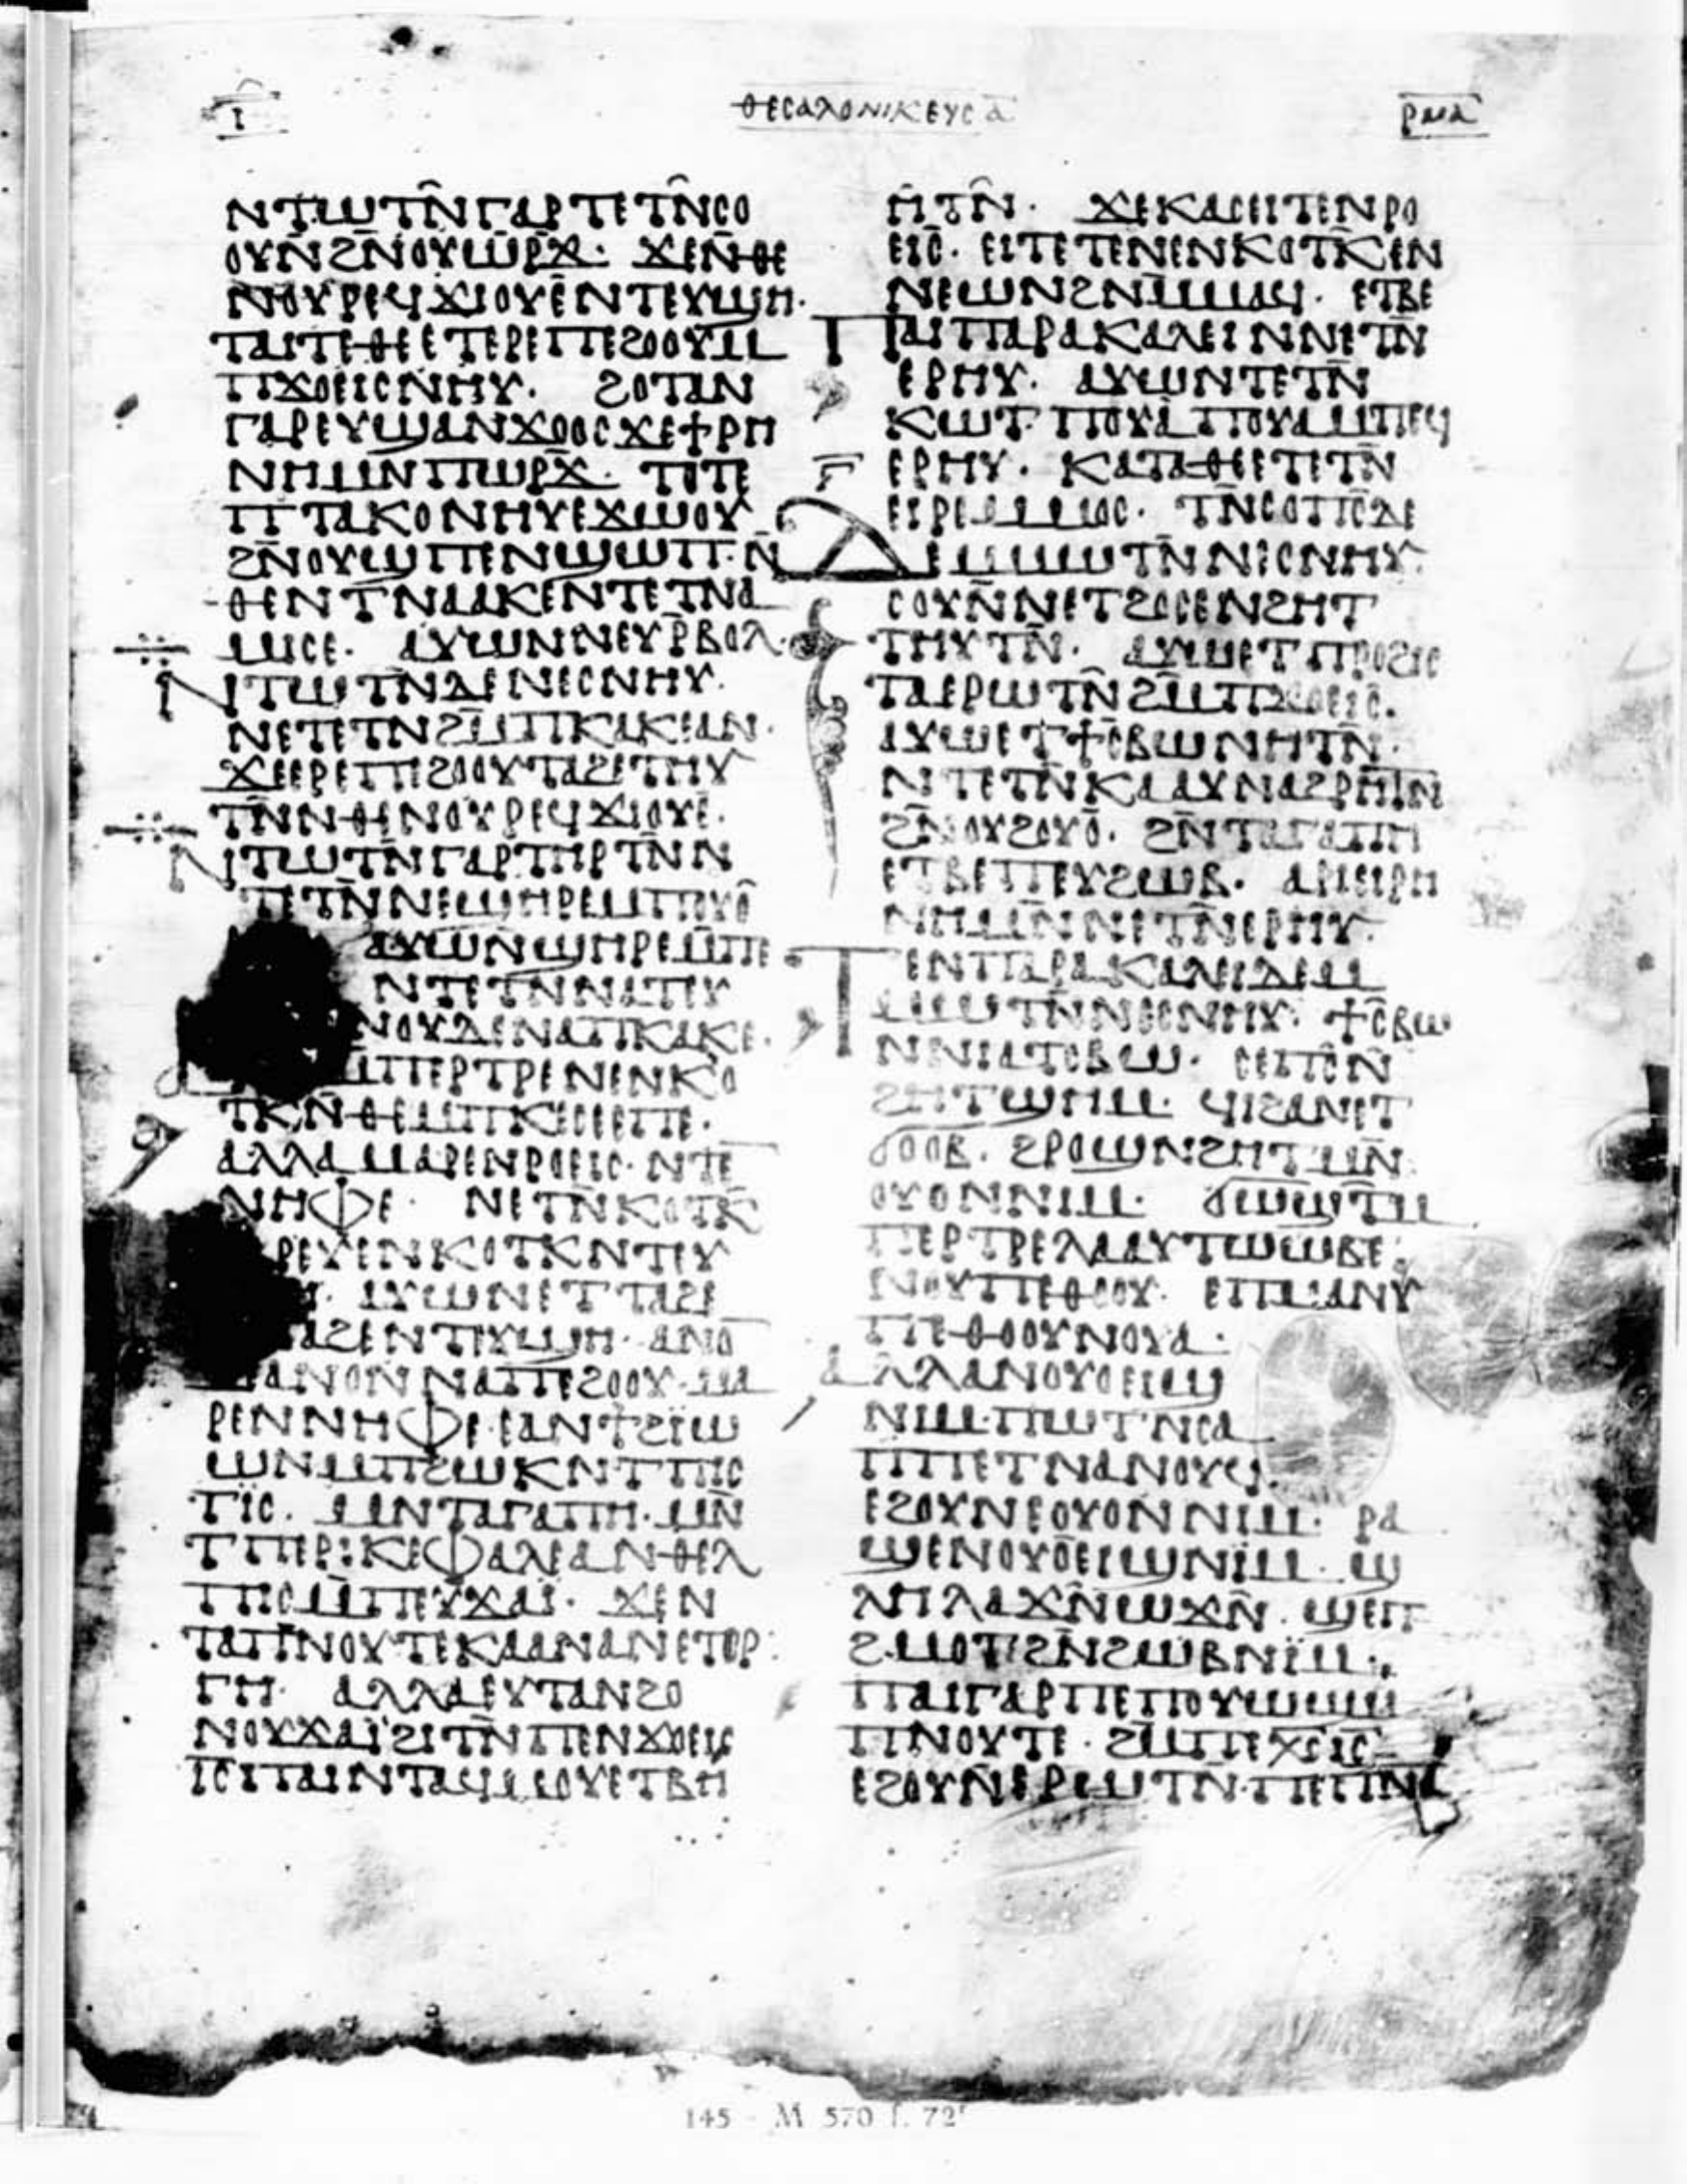 ⲑⲉⲥⲁⲗⲟⲛⲓⲕⲉⲩⲥ ⲁ̅
ⲣⲙⲁ
ⲛⲧⲱⲧⲛ̂ⲅⲁⲣⲧⲉⲧⲛ̂ⲥⲟ
ⲟⲩⲛ̅ϩⲛ̅ⲟⲩⲱⲣ̅ϫ· ϫⲉⲛ̅ⲑⲉ
ⲛⲟⲩⲣⲉϥϫⲓⲟⲩⲉⲛⲧⲉⲩϣⲏ·
ⲧⲁⲓⲧⲉⲑⲉⲉⲧⲉⲣⲉⲡⲉϩⲟⲟⲩⲙ
ⲡϫⲟⲉⲓⲥⲛⲏⲩ· ϩⲟⲧⲁⲛ
ⲅⲁⲣⲉⲩϣⲁⲛϫⲟⲟⲥϫⲉϯⲣⲏ
ⲛⲏⲙⲛⲡⲱⲣ̅ϫ· ⲧⲟⲧⲉ
ⲡⲧⲁⲕⲟⲛⲏⲩⲉϫⲱⲟⲩ
ϩⲛ̅ⲟⲩϣⲡⲉⲛϣⲱⲡ·ⲛ̅
ⲑⲉⲛⲧⲛⲁⲁⲕⲉⲛⲧⲉⲧⲛⲁ
ⲙⲓⲥⲉ· ⲁⲩⲱⲛⲛⲉⲩⲣ̅ⲃⲟⲗ·
ⲛⲧⲱⲧⲛⲇⲉⲛⲉⲥⲛⲏⲩ·
ⲛⲉⲧⲉⲧⲛϩⲙ̅ⲡⲕⲁⲕⲉⲁⲛ·
ϫⲉⲉⲣⲉⲡⲉϩⲟⲟⲩⲧⲁϩⲉⲧⲏⲩ
ⲧⲛ̅ⲛⲑⲉⲛⲟⲩⲣⲉϥϫⲓⲟⲩⲉ̅·
ⲛⲧⲱⲧⲛ̅ⲅⲁⲣⲧⲏⲣⲧⲛ̅ⲛ
ⲧⲉⲧⲛ̅ⲛⲉϣⲏⲣⲉⲙⲡⲟⲩⲟ̂
ⲁⲩⲱⲛ̅ϣⲏⲣⲉⲙ̅ⲡⲉ
ⲛⲧⲉⲧⲛⲛⲁⲧⲉⲩ
ⲛⲟⲩⲇⲉⲛⲁⲡⲕⲁⲕⲉ·
ⲙⲡⲉⲣⲧⲣⲉⲛⲉⲛⲕⲟ
ⲧⲕⲛ̅ⲑⲉⲙⲡⲕⲉⲥⲉⲉⲡⲉ·
ⲁⲗⲗⲁⲙⲁⲣⲉⲛⲣⲟⲉⲓⲥ·ⲛⲧⲉ
ⲛⲏⲫⲉ· ⲛⲉⲧⲛ̅ⲕⲟⲧⲕ̅
ⲣⲉⲩⲉⲛⲕⲟⲧⲕⲛⲧⲉⲩ
ⲁⲩⲱⲛⲉⲧⲧⲁϩⲉ
ⲁϩⲉⲛⲧⲉⲩϣⲏ·ⲁⲛⲟ̅
ⲁⲛⲟⲛⲛⲁⲡⲉϩⲟⲟⲩ·ⲙⲁ
ⲣⲉⲛⲛⲏⲫⲉ·ⲉⲁⲛϯϩⲓ̈ⲱ
ⲱⲛⲙⲡϩⲱⲕⲛⲧⲡⲓⲥ
ⲧⲓ̈ⲥ. ⲙⲛⲧⲁⲅⲁⲡⲏ·ⲙⲛ̅
ⲧⲡⲉⲣⲓⲕⲉⲫⲁⲗⲉⲁⲛⲑⲉⲗ
ⲡⲓⲥⲙ̅ⲡⲉⲩϫⲁⲓ̈· ϫⲉⲛ
ⲧⲁⲡⲛⲟⲩⲧⲉⲕⲁⲁⲛⲁⲛⲉⲧⲟⲣ
ⲅⲏ· ⲁⲗⲗⲁⲉⲩⲧⲁⲛϩⲟ
ⲛⲟⲩϫⲁⲓ̈ϩⲓⲧⲛ̅ⲡⲉⲛϫⲟⲉⲓⲥ
ⲓ̅ⲥ̅ⲡⲁⲓⲛⲧⲁϥⲙⲟⲩⲉⲧⲃⲏ
ⲏⲧⲛ̂· ϫⲉⲕⲁⲥⲉⲓⲧⲉⲛⲣⲟ
ⲉⲓⲥ̅· ⲉⲓⲧⲉⲧⲉⲛⲉⲛⲕⲟⲧⲕ̅ⲉⲛ
ⲛⲉⲱⲛϩⲛⲙ̅ⲙⲁϥ· ⲉⲧⲃⲉ
ⲡⲁⲓⲡⲁⲣⲁⲕⲁⲗⲉⲓⲛⲛⲉⲧⲛ̅
ⲉⲣⲏⲩ· ⲁⲩⲱⲛⲧⲉⲧⲛ̅
ⲕⲱⲧ·ⲡⲟⲩⲁⲡⲟⲩⲁⲙⲡⲉϥ
ⲉⲣⲏⲩ· ⲕⲁⲧⲁⲑⲉⲉⲧⲉⲧⲛ̅
ⲉⲓⲣⲉⲙⲙⲟⲥ· ⲧⲛ̅ⲥⲟⲡⲥ̅ⲇⲉ
ⲇⲉⲙⲙⲱⲧⲛ̅ⲛⲉⲥⲛⲏⲩ·
ⲥⲟⲩⲛ̅ⲛⲉⲧϩⲟⲥⲉⲛϩⲏⲧ
ⲧⲏⲩⲧⲛ̅· ⲁⲩⲱⲉⲧⲡⲣⲟϩⲓⲥ
ⲧⲁⲉⲣⲱⲧⲛ̂ϩⲙ̅ⲡϫⲟⲉⲓⲥ̅.
ⲁⲩⲱⲉⲧϯⲥⲃⲱⲛⲏⲧⲛ̅·
ⲛⲧⲉⲧⲛ̅ⲕⲁⲁⲩⲛⲁϩⲣⲏⲧⲛ̅
ϩⲛ̅ⲟⲩϩⲟⲩⲟ̂· ϩⲛ̅ⲧⲁⲅⲁⲡⲏ
ⲉⲧⲃⲉⲡⲉⲩϩⲱⲃ· ⲁⲣⲓⲉⲓⲣⲏ
ⲛⲏⲙⲛ̅ⲛⲉⲧⲛ̅ⲉⲣⲏⲩ·
ⲧⲉⲛⲡⲁⲣⲁⲕⲁⲗⲉⲓⲇⲉⲙ
ⲙⲱⲧⲛ̅ⲛⲉⲥⲛⲏⲩ· ϯⲥ̂ⲃⲱ
ⲛⲛⲓⲁⲧⲥⲃⲱ· ⲥⲉⲡⲥⲛ̅
ϩⲏⲧϣⲏⲙ· ϥⲓϩⲁⲛⲉⲧ
ϭⲟⲟⲃ· ϩⲣⲟϣⲛϩⲏⲧⲙⲛ̅
ⲟⲩⲟⲛⲛⲓⲙ· ϭⲱϣⲧⲙ̅
ⲡⲉⲣⲧⲣⲉⲗⲁⲁⲩⲧⲱⲱⲃⲉ
ⲛⲟⲩⲡⲉⲑⲟⲟⲩ· ⲉⲡⲙⲁⲛⲩ
ⲡⲉⲑⲟⲟⲩⲛⲟⲩⲁ·
ⲁⲗⲗⲁⲛⲟⲩⲟⲉⲓϣ
ⲛⲓⲙ·ⲡⲱⲧⲛⲥⲁ
ⲡⲡⲉⲧⲛⲁⲛⲟⲩϥ.
ⲉϩⲟⲩⲛⲉⲟⲩⲟⲛⲛⲓⲙ· ⲣⲁ
ϣⲉⲛⲟⲩⲟⲉⲓϣⲛⲓⲙ· ϣ
ⲗⲏⲗⲁϫⲛ̅ⲱϫⲛ̅· ϣⲉⲡ
ϩⲙⲟⲧϩⲛ̅ϩⲱⲃⲛⲓ̈ⲙ·
ⲡⲁⲓⲅⲁⲣⲡⲉⲡⲟⲩⲱϣⲙ
ⲡⲛⲟⲩⲧⲉ· ϩⲙ̅ⲡⲉⲭ̅ⲥ̅ⲓ̅ⲥ̅
ⲉϩⲟⲩⲛ̅ⲉⲣⲱⲧⲛ̅·ⲡⲉⲡⲛ̅
145 - M 570 f. 72ʳ